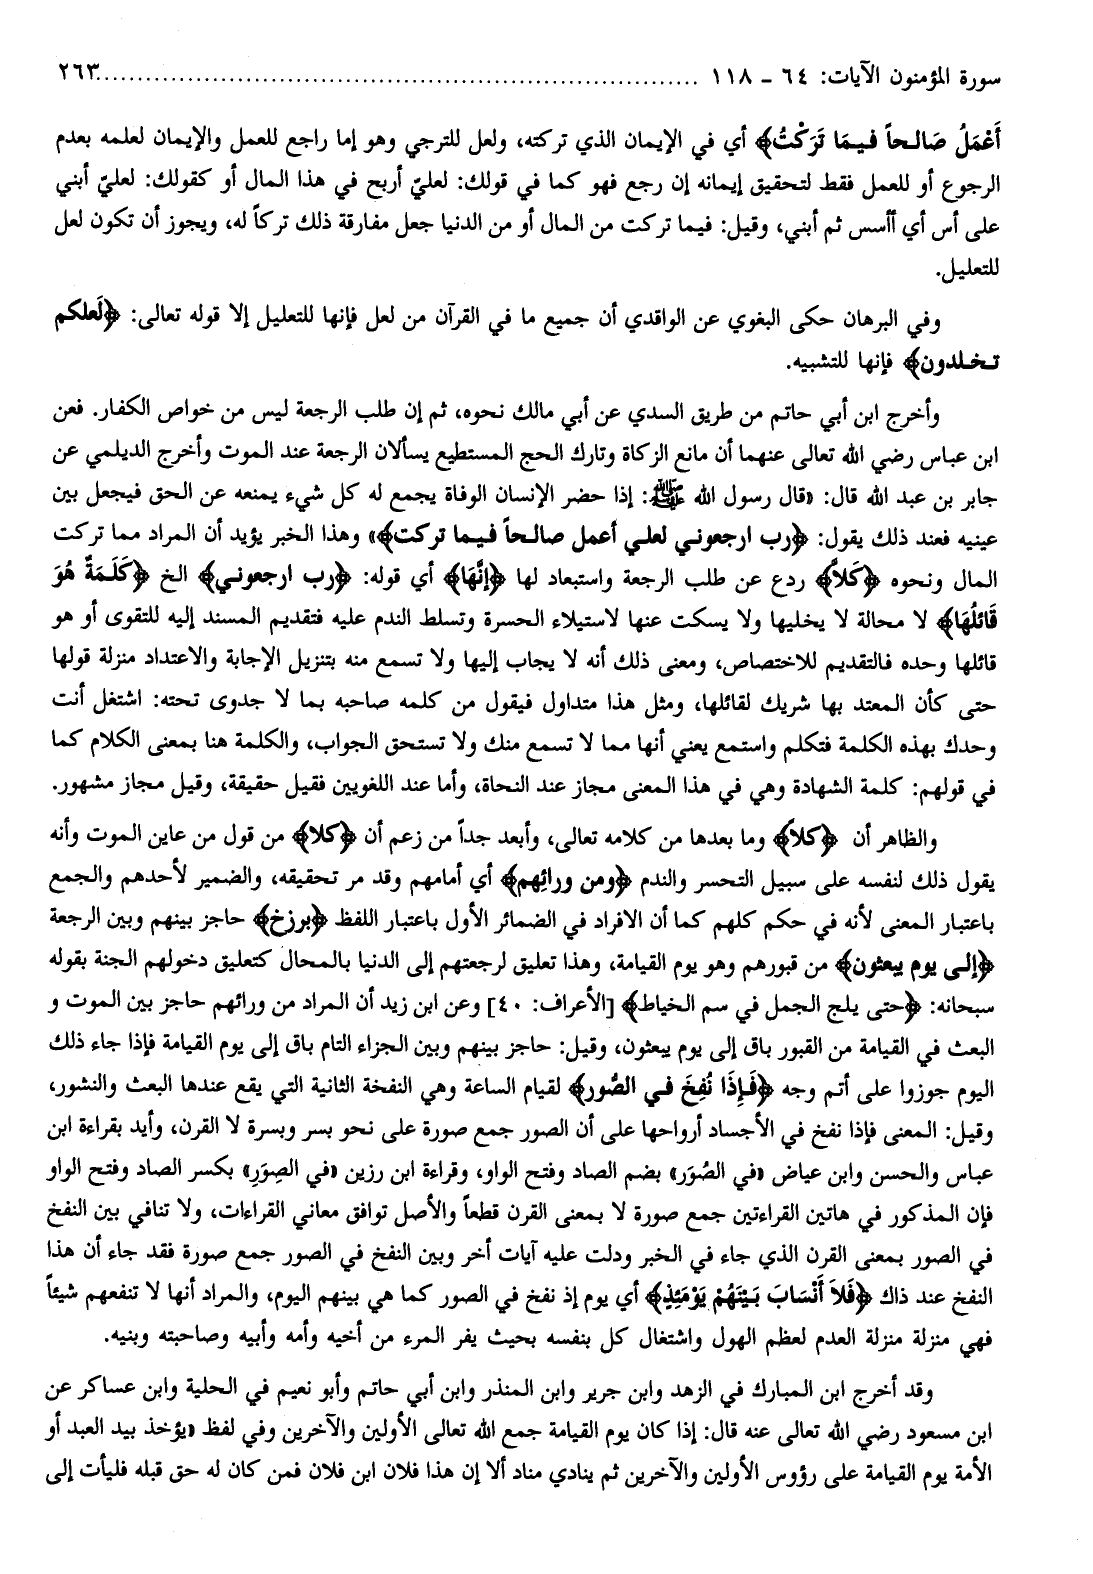 سورة المؤمنون الآيات: ٦٤ - ١١٨ ........................................................................ ٢٦٣
أَعْمَلُ صَالحاً فيمَا تَرَكْتُ﴾ أي في الإيمان الذي تركته، ولعل للترجي وهو إما راجع للعمل والإيمان لعلمه بعدم
الرجوع أو للعمل فقط لتحقيق إيمانه إن رجع فهو كما في قولك: لعليّ أربح في هذا المال أو كقولك: لعليّ أبني
على أس أي أأسس ثم أبني، وقيل: فيما تركت من المال أو من الدنيا جعل مفارقة ذلك تركاً له، ويجوز أن تكون لعل
للتعليل.
وفي البرهان حكى البغوي عن الواقدي أن جميع ما في القرآن من لعل فإنها للتعليل إلا قوله تعالى: ﴿لَعلكم
تخلدون﴾ فإنها للتشبيه.
وأخرج ابن أبي حاتم من طريق السدي عن أبي مالك نحوه، ثم إن طلب الرجعة ليس من خواص الكفار. فعن
ابن عباس رضي الله تعالى عنهما أن مانع الزكاة وتارك الحج المستطيع يسألان الرجعة عند الموت وأخرج الديلمي عن
جابر بن عبد الله قال: «قال رسول الله ﷺ: إذا حضر الإنسان الوفاة يجمع له كل شيء يمنعه عن الحق فيجعل بين
عينيه فعند ذلك يقول: ﴿رب ارجعوني لعلي أعمل صالحاً فيما تركت﴾» وهذا الخبر يؤيد أن المراد مما تركت
المال ونحوه ﴿كَلاَّ﴾ ردع عن طلب الرجعة واستبعاد لها ﴿إنَّهَا﴾ أي قوله: ﴿رب ارجعوني﴾ الخ ﴿كَلَمَةٌ هُوَ
قَائلُهَا﴾ لا محالة لا يخليها ولا يسكت عنها لاستيلاء الحسرة وتسلط الندم عليه فتقديم المسند إليه للتقوى أو هو
قائلها وحده فالتقديم للاختصاص، ومعنى ذلك أنه لا يجاب إليها ولا تسمع منه بتنزيل الإجابة والاعتداد منزلة قولها
حتى كأن المعتد بها شريك لقائلها، ومثل هذا متداول فيقول من كلمه صاحبه بما لا جدوى تحته: اشتغل أنت
وحدك بهذه الكلمة فتكلم واستمع يعني أنها مما لا تسمع منك ولا تستحق الجواب، والكلمة هنا بمعنى الكلام كما
في قولهم: كلمة الشهادة وهي في هذا المعنى مجاز عند النحاة، وأما عند اللغويين فقيل حقيقة، وقيل مجاز مشهور.
والظاهر أن ﴿كلاَّ﴾ وما بعدها من كلامه تعالى، وأبعد جداً من زعم أن ﴿كلا﴾ من قول من عاين الموت وأنه
يقول ذلك لنفسه على سبيل التحسر والندم ﴿ومن ورائهم﴾ أي أمامهم وقد مر تحقيقه، والضمير لأحدهم والجمع
باعتبار المعنى لأنه في حكم كلهم كما أن الافراد في الضمائر الأول باعتبار اللفظ ﴿برزخ﴾ حاجز بينهم وبين الرجعة
﴿إلى يوم يبعثون﴾ من قبورهم وهو يوم القيامة، وهذا تعليق لرجعتهم إلى الدنيا بالمحال كتعليق دخولهم الجنة بقوله
سبحانه: ﴿حتى يلج الجمل في سم الخياط﴾ [الأعراف: ٤٠] وعن ابن زيد أن المراد من ورائهم حاجز بين الموت و
البعث في القيامة من القبور باق إلى يوم يبعثون، وقيل: حاجز بينهم وبين الجزاء التام باق إلى يوم القيامة فإذا جاء ذلك
اليوم جوزوا على أتم وجه ﴿فَإِذَا نُفخَ في الصُّور﴾ لقيام الساعة وهي النفخة الثانية التي يقع عندها البعث والنشور،
وقيل: المعنى فإذا نفخ في الأجساد أرواحها على أن الصور جمع صورة على نحو بسر وبسرة لا القرن، وأيد بقراءة ابن
عباس والحسن وابن عياض «في الصُوَر» بضم الصاد وفتح الواو، وقراءة ابن رزين «في الصِوَرِ» بكسر الصاد وفتح الواو
فإن المذكور في هاتين القراءتين جمع صورة لا بمعنى القرن قطعاً والأصل توافق معاني القراءات، ولا تنافي بين النفخ
في الصور بمعنى القرن الذي جاء في الخبر ودلت عليه آيات أخر وبين النفخ في الصور جمع صورة فقد جاء أن هذا
النفخ عند ذاك ﴿فَلاَ أَنْسَابَ بَيْنَهُمْ يَوْمَئِذٍ﴾ أي يوم إذ نفخ في الصور كما هي بينهم اليوم، والمراد أنها لا تنفعهم شيئاً
فهي منزلة منزلة العدم لعظم الهول واشتغال كل بنفسه بحيث يفر المرء من أخيه وأمه وأبيه وصاحبته وبنيه.
وقد أخرج ابن المبارك في الزهد وابن جرير وابن المنذر وابن أبي حاتم وأبو نعيم في الحلية وابن عساكر عن
ابن مسعود رضي الله تعالى عنه قال: إذا كان يوم القيامة جمع الله تعالى الأولين والآخرين وفي لفظ «يؤخذ بيد العبد أو
الأمة يوم القيامة على رؤوس الأولين والآخرين ثم ينادي مناد ألا إن هذا فلان ابن فلان فمن كان له حق قبله فليأت إلى